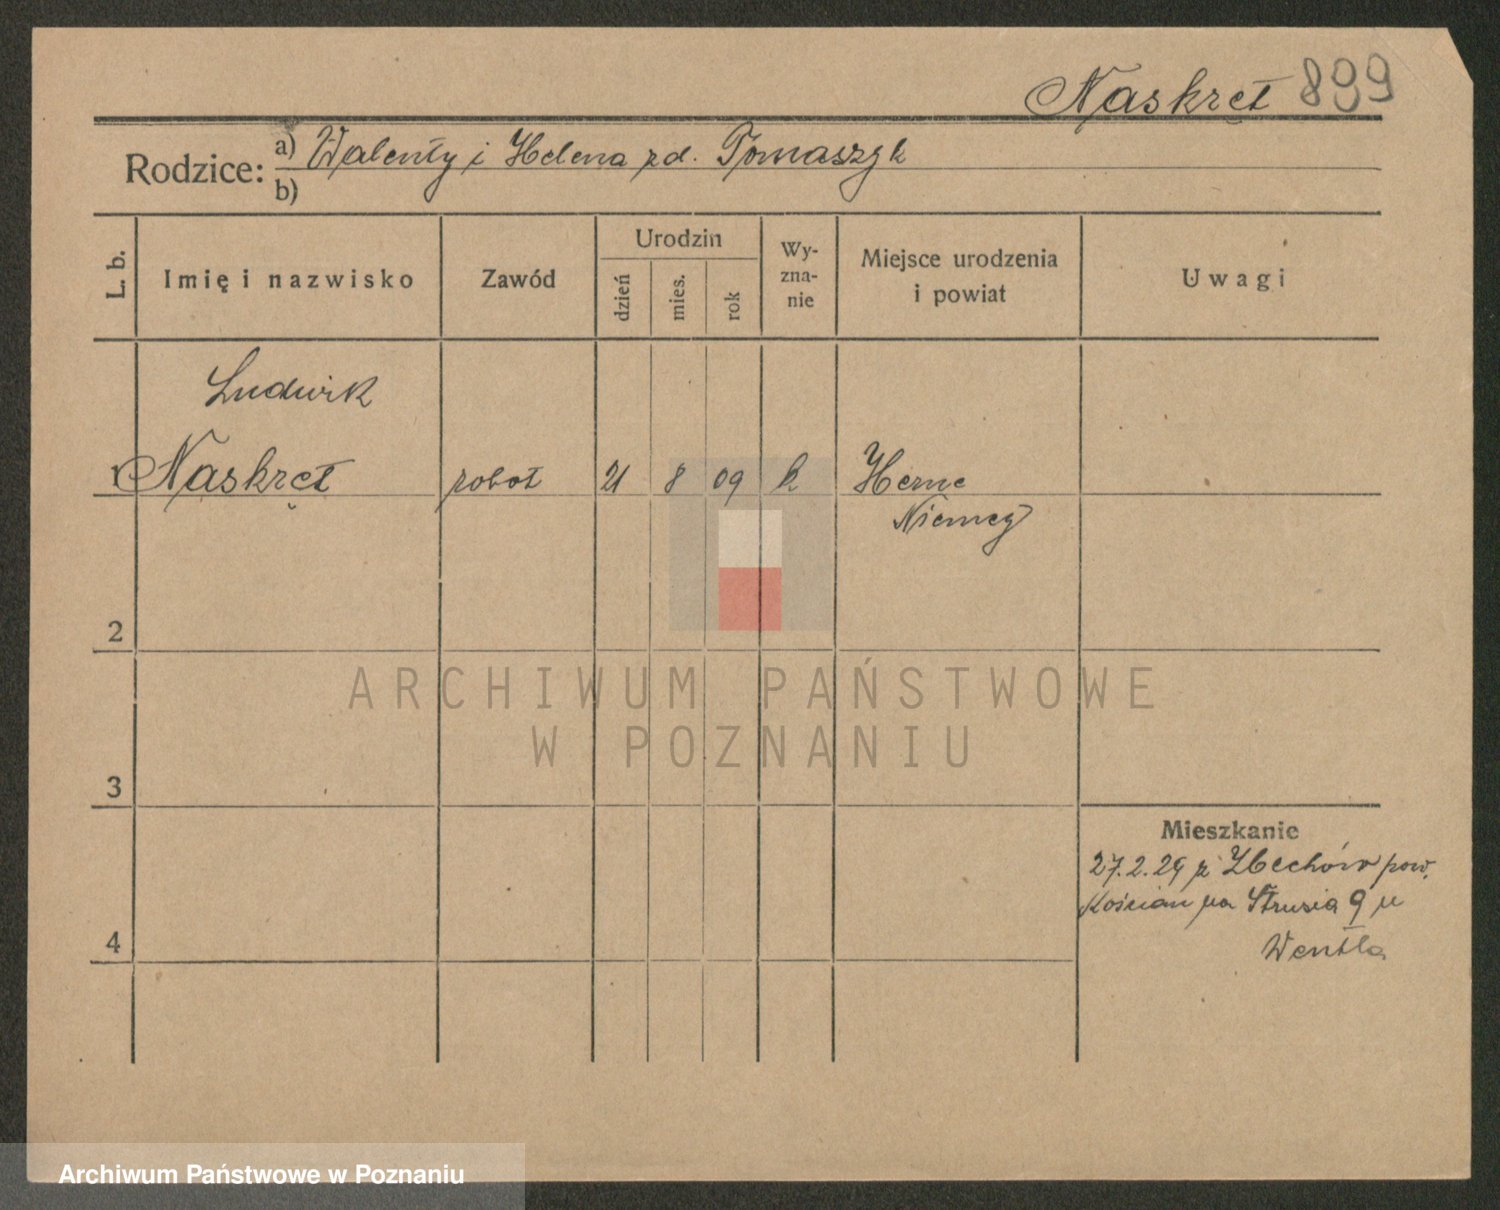 Naskręt 899
Rodzice: a) Walenty i Helena zd. Tomaszyk
b)
L. b. Imię i nazwisko Zawód Urodzin dzień mies. rok Wy-zna-nie Miejsce urodzenia i powiat Uwagi
Ludwik
1 Naskręt robot 21 8 09 k Herne
Niemcy
2
ARCHIWUM PAŃSTWOWE
W POZNANIU
3
Mieszkanie
27.2.29 z Zbechów pow.
Kościan na Strusia 9 u
4
Wentla
Archiwum Państwowe w Poznaniu